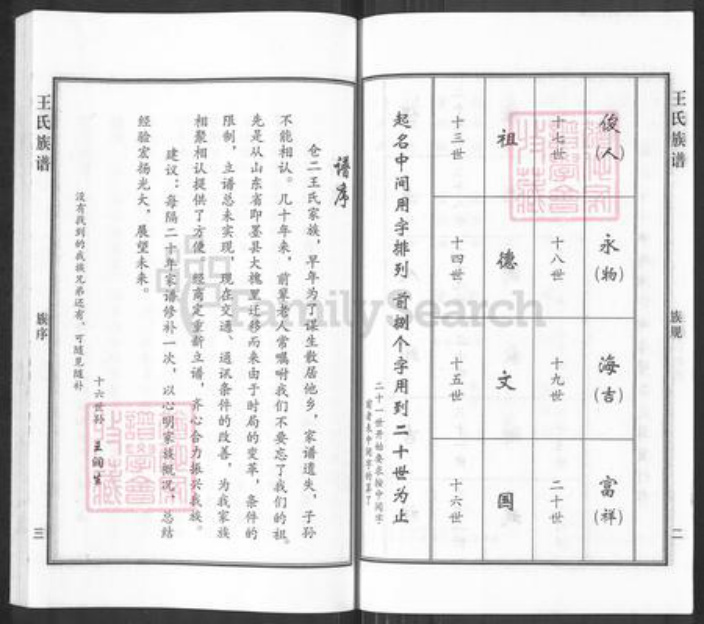 王氏族谱
族规
二
俊(人) 永(物) 海(吉) 富(祥)
十七世 十八世 十九世 二十世
祖 德 文 国
十三世 十四世 十五世 十六世
起名中间用字排列 前捌个字用到二十世为止
二十一世开始
王氏族谱
族序
三
谱序
仓二王氏家族，早年为了谋生散居他乡，家谱遗失，子孙
不能相认。几十年来，前辈老人常嘱咐我们不要忘了我们的祖。
先是从山东省即墨县大槐里迁移而来由于时局的变革，条件的
限制，立谱总未实现，现在交通、通讯条件的改善，为我家族
相聚相认提供了方便，经商定重新立谱，齐心合力振兴我族。
建议：每隔二十年家谱修补一次，以心明家族概况，总结
经验宏扬光大，展望未来。
没有找到的我族兄弟还有，可随见随补
十六世孙 王润生
FamilySearch